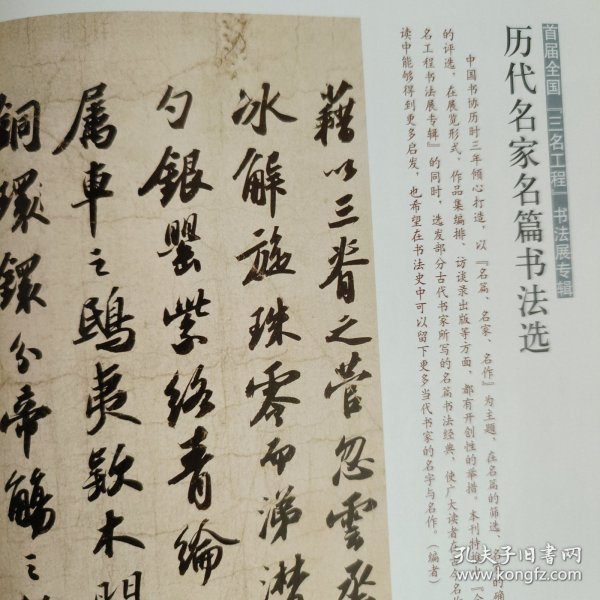 首届全国「三名工程」书法展专辑
历代名家名篇书法选
中国书协历时三年倾心打造，以『名篇、名家、名作』为主题，在名篇的筛选、名的确
的评选，在展览形式、作品集编排、访谈录出版等方面，都有开创性的举措。本刊特
名工程书法展专辑』的同时，选发部分古代书家所写的名篇书法经典，使广大读者在
读中能够得到更多启发，也希望在书法史中可以留下更多当代书家的名字与名作。（编者）
藉以三脊之菅忽雲烝
冰解旋珠零而涕潸
勺銀罌紫絡青綸
属車之鴟夷款木門
銅環鐶分帝觴之
孔夫子旧书网
www.kongfz.com